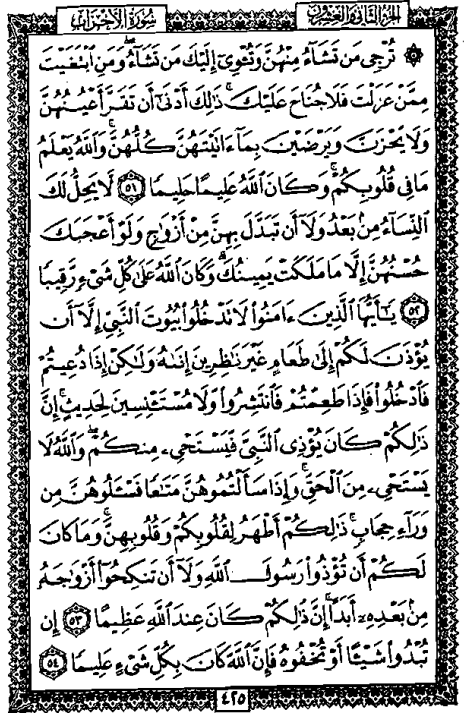 الجزء الثاني والعشرون
سورة الأحزاب
۞ تُرْجِى مَن تَشَآءُ مِنْهُنَّ وَتُـْٔوِىٓ إِلَيْكَ مَن تَشَآءُ ۖ وَمَنِ ٱبْتَغَيْتَ
مِمَّنْ عَزَلْتَ فَلَا جُنَاحَ عَلَيْكَ ۚ ذَٰلِكَ أَدْنَىٰٓ أَن تَقَرَّ أَعْيُنُهُنَّ
وَلَا يَحْزَنَّ وَيَرْضَيْنَ بِمَآ ءَاتَيْتَهُنَّ كُلُّهُنَّ ۚ وَٱللَّهُ يَعْلَمُ
مَا فِى قُلُوبِكُمْ ۚ وَكَانَ ٱللَّهُ عَلِيمًا حَلِيمًا ٥١ لَّا يَحِلُّ لَكَ
ٱلنِّسَآءُ مِنۢ بَعْدُ وَلَآ أَن تَبَدَّلَ بِهِنَّ مِنْ أَزْوَٰجٍ وَلَوْ أَعْجَبَكَ
حُسْنُهُنَّ إِلَّا مَا مَلَكَتْ يَمِينُكَ ۗ وَكَانَ ٱللَّهُ عَلَىٰ كُلِّ شَىْءٍ رَّقِيبًا
٥٢ يَـٰٓأَيُّهَا ٱلَّذِينَ ءَامَنُوا۟ لَا تَدْخُلُوا۟ بُيُوتَ ٱلنَّبِىِّ إِلَّآ أَن
يُؤْذَنَ لَكُمْ إِلَىٰ طَعَامٍ غَيْرَ نَـٰظِرِينَ إِنَىٰهُ وَلَـٰكِنْ إِذَا دُعِيتُمْ
فَٱدْخُلُوا۟ فَإِذَا طَعِمْتُمْ فَٱنتَشِرُوا۟ وَلَا مُسْتَـْٔنِسِينَ لِحَدِيثٍ ۚ إِنَّ
ذَٰلِكُمْ كَانَ يُؤْذِى ٱلنَّبِىَّ فَيَسْتَحْىِۦ مِنكُمْ ۖ وَٱللَّهُ لَا
يَسْتَحْىِۦ مِنَ ٱلْحَقِّ ۚ وَإِذَا سَأَلْتُمُوهُنَّ مَتَـٰعًا فَسْـَٔلُوهُنَّ مِن
وَرَآءِ حِجَابٍ ۚ ذَٰلِكُمْ أَطْهَرُ لِقُلُوبِكُمْ وَقُلُوبِهِنَّ ۚ وَمَا كَانَ
لَكُمْ أَن تُؤْذُوا۟ رَسُولَ ٱللَّهِ وَلَآ أَن تَنكِحُوٓا۟ أَزْوَٰجَهُۥ
مِنۢ بَعْدِهِۦٓ أَبَدًا ۚ إِنَّ ذَٰلِكُمْ كَانَ عِندَ ٱللَّهِ عَظِيمًا ٥٣ إِن
تُبْدُوا۟ شَيْـًٔا أَوْ تُخْفُوهُ فَإِنَّ ٱللَّهَ كَانَ بِكُلِّ شَىْءٍ عَلِيمًا ٥٤
٤٢٥